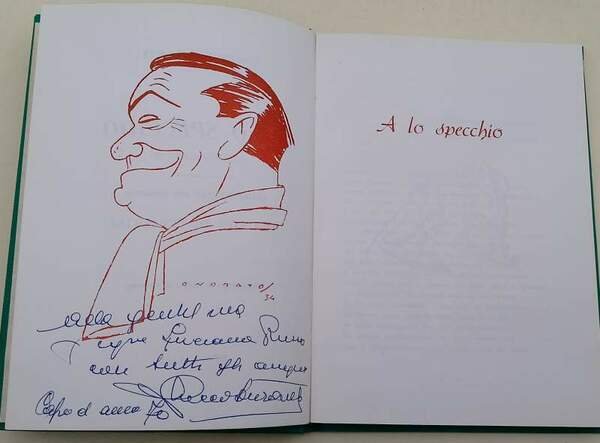 ONORATO/34
alla gentil ma
Sigra Luciana
con tutti gli auguri
Capo d'anno 70
A lo specchio